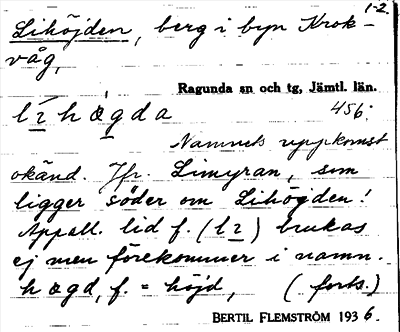 1-2.
Lihöjden, berg i byn Krok-
våg,
Ragunda sn och tg, Jämtl. län.
lī hœgda 456.
Namnets uppkomst
okänd. Jfr. Limyran, som
ligger söder om Lihöjden!
Appell. lid f. (lī) brukas
ej men förekommer i namn.
hœgd, f. = höjd, (forts.)
BERTIL FLEMSTRÖM 1936.